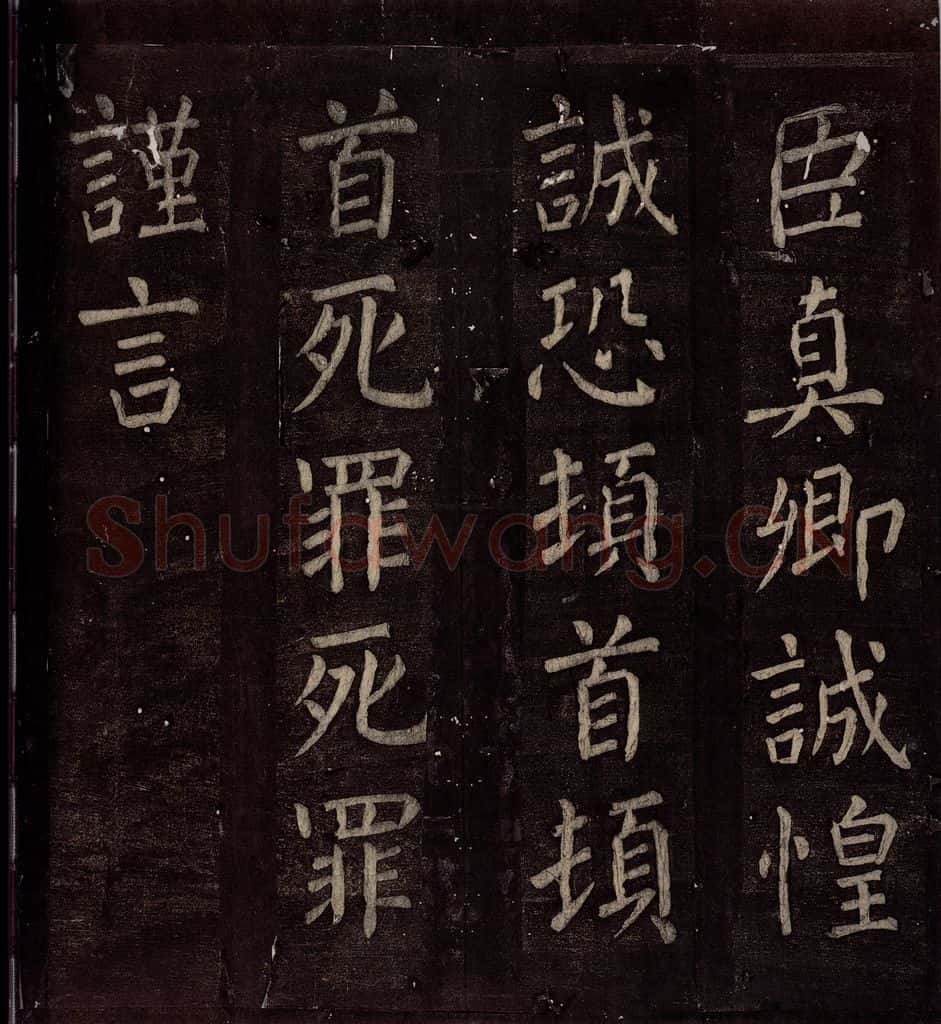 臣真卿誠惶
誠恐頓首頓
首死罪死罪
謹言
Shufawang.CN